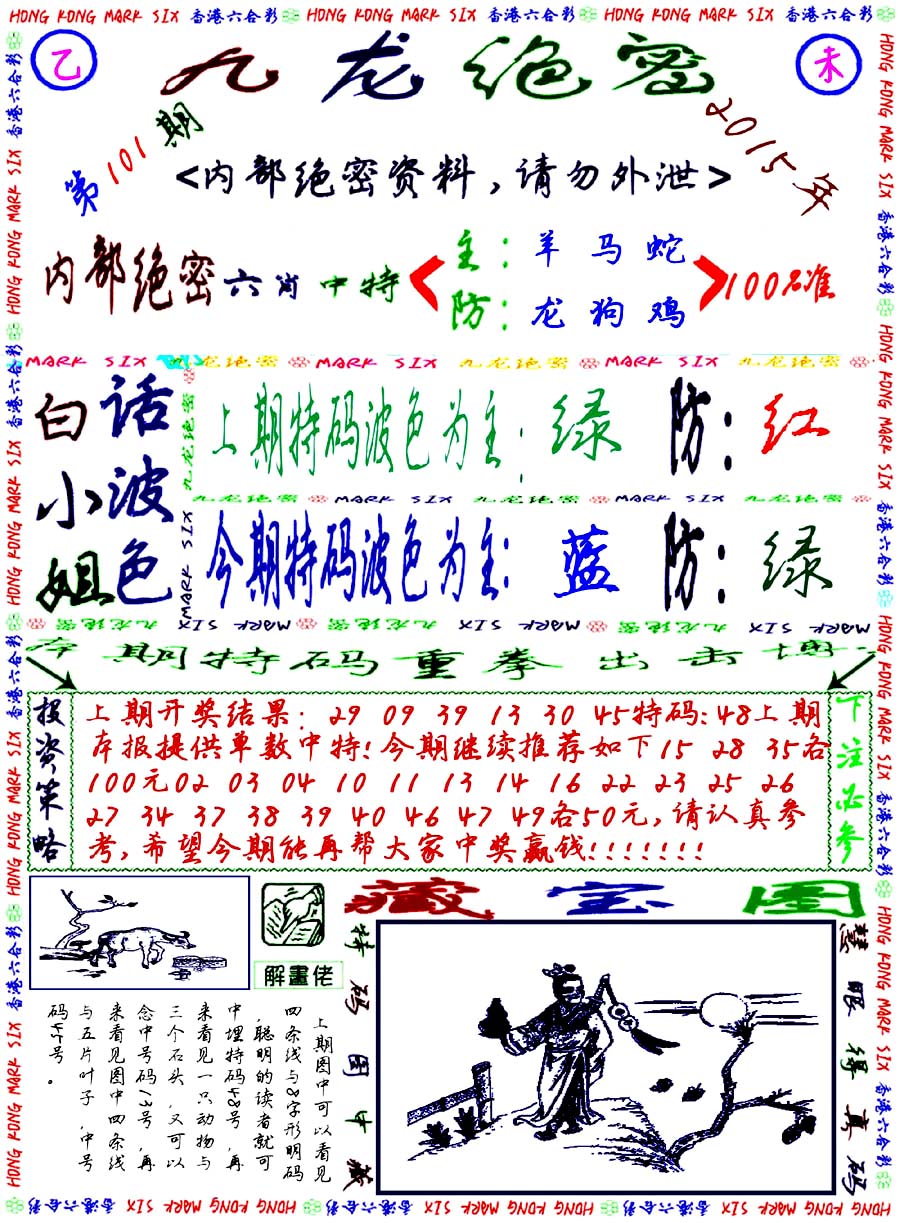 HONG KONG MARK SIX 香港六合彩 HONG KONG MARK SIX 香港六合彩 HONG KONG MARK SIX 香港六合彩
乙
九龙绝密
未
第101期
2015年
<内部绝密资料,请勿外泄>
内部绝密六肖中特
主:羊马蛇
防:龙狗鸡
100%准
MARK SIX 九龙绝密 MARK SIX 九龙绝密 MARK SIX 九龙绝密
白小姐
话波色
上期特码波色为主:绿 防:红
九龙绝密 MARK SIX 九龙绝密 MARK SIX 九龙绝密
今期特码波色为主:蓝 防:绿
九龙绝密 MARK SIX 九龙绝密 MARK SIX 九龙绝密 MARK SIX
本期特码重拳出击博
投资策略
上期开奖结果: 29 09 39 13 30 45特码:48上期
本报提供单数中特!今期继续推荐如下15 28 35各
100元02 03 04 10 11 13 14 16 22 23 25 26
27 34 37 38 39 40 46 47 49各50元,请认真参
考,希望今期能再帮大家中奖赢钱!!!!!!!
下注必参
解畫佬
藏宝图
特码图中藏
慧眼得真码
上期图中可以看见
四条线与8字形明码
,聪明的读者就可
中埋特码48号,再
来看见一只动物与
三个石头,又可以
念中号码13号,再
来看见图中四条线
与五片叶子,中号
码45号。
HONG KONG MARK SIX 香港六合彩 HONG KONG MARK SIX 香港六合彩 HONG KONG MARK SIX 香港六合彩